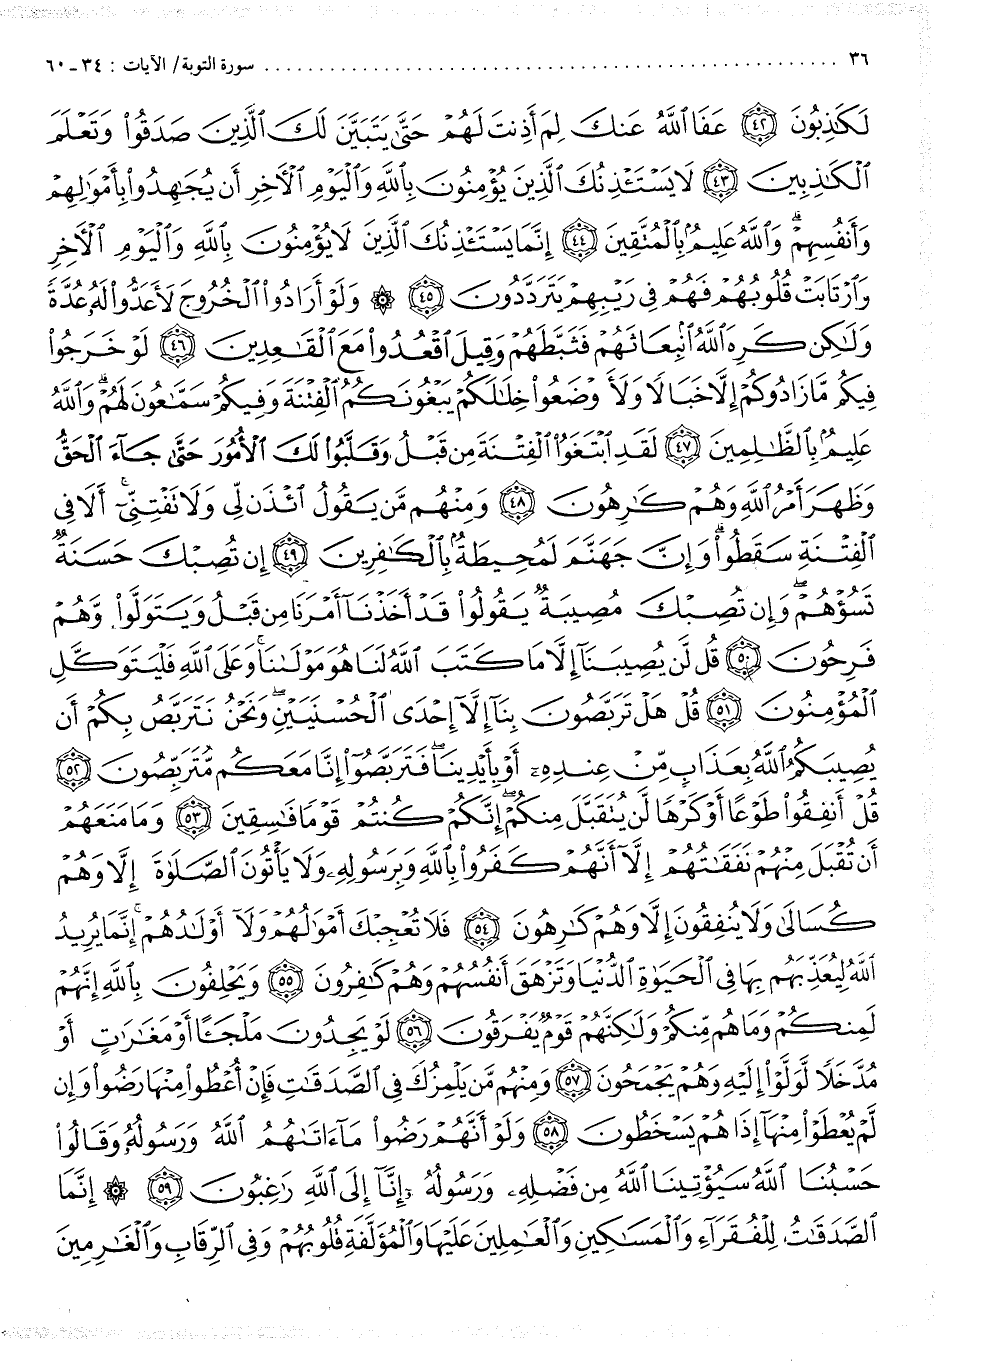 ٣٦ ................................................ سورة التوبة/ الآيات : ٣٤ ـ ٦٠
لَكَٰذِبُونَ ﴿٤٢﴾ عَفَا ٱللَّهُ عَنكَ لِمَ أَذِنتَ لَهُمْ حَتَّىٰ يَتَبَيَّنَ لَكَ ٱلَّذِينَ صَدَقُوا۟ وَتَعْلَمَ
ٱلْكَٰذِبِينَ ﴿٤٣﴾ لَا يَسْتَـْٔذِنُكَ ٱلَّذِينَ يُؤْمِنُونَ بِٱللَّهِ وَٱلْيَوْمِ ٱلْـَٔاخِرِ أَن يُجَٰهِدُوا۟ بِأَمْوَٰلِهِمْ
وَأَنفُسِهِمْ ۗ وَٱللَّهُ عَلِيمٌۢ بِٱلْمُتَّقِينَ ﴿٤٤﴾ إِنَّمَا يَسْتَـْٔذِنُكَ ٱلَّذِينَ لَا يُؤْمِنُونَ بِٱللَّهِ وَٱلْيَوْمِ ٱلْـَٔاخِرِ
وَٱرْتَابَتْ قُلُوبُهُمْ فَهُمْ فِى رَيْبِهِمْ يَتَرَدَّدُونَ ﴿٤٥﴾ ۞ وَلَوْ أَرَادُوا۟ ٱلْخُرُوجَ لَأَعَدُّوا۟ لَهُۥ عُدَّةً
وَلَٰكِن كَرِهَ ٱللَّهُ ٱنۢبِعَاثَهُمْ فَثَبَّطَهُمْ وَقِيلَ ٱقْعُدُوا۟ مَعَ ٱلْقَٰعِدِينَ ﴿٤٦﴾ لَوْ خَرَجُوا۟
فِيكُم مَّا زَادُوكُمْ إِلَّا خَبَالًا وَلَأَوْضَعُوا۟ خِلَٰلَكُمْ يَبْغُونَكُمُ ٱلْفِتْنَةَ وَفِيكُمْ سَمَّٰعُونَ لَهُمْ ۗ وَٱللَّهُ
عَلِيمٌۢ بِٱلظَّٰلِمِينَ ﴿٤٧﴾ لَقَدِ ٱبْتَغَوُا۟ ٱلْفِتْنَةَ مِن قَبْلُ وَقَلَّبُوا۟ لَكَ ٱلْأُمُورَ حَتَّىٰ جَآءَ ٱلْحَقُّ
وَظَهَرَ أَمْرُ ٱللَّهِ وَهُمْ كَٰرِهُونَ ﴿٤٨﴾ وَمِنْهُم مَّن يَقُولُ ٱئْذَن لِّى وَلَا تَفْتِنِّىٓ ۚ أَلَا فِى
ٱلْفِتْنَةِ سَقَطُوا۟ ۗ وَإِنَّ جَهَنَّمَ لَمُحِيطَةٌۢ بِٱلْكَٰفِرِينَ ﴿٤٩﴾ إِن تُصِبْكَ حَسَنَةٌ
تَسُؤْهُمْ ۖ وَإِن تُصِبْكَ مُصِيبَةٌ يَقُولُوا۟ قَدْ أَخَذْنَآ أَمْرَنَا مِن قَبْلُ وَيَتَوَلَّوا۟ وَّهُمْ
فَرِحُونَ ﴿٥٠﴾ قُل لَّن يُصِيبَنَآ إِلَّا مَا كَتَبَ ٱللَّهُ لَنَا هُوَ مَوْلَىٰنَا ۚ وَعَلَى ٱللَّهِ فَلْيَتَوَكَّلِ
ٱلْمُؤْمِنُونَ ﴿٥١﴾ قُلْ هَلْ تَرَبَّصُونَ بِنَآ إِلَّآ إِحْدَى ٱلْحُسْنَيَيْنِ ۖ وَنَحْنُ نَتَرَبَّصُ بِكُمْ أَن
يُصِيبَكُمُ ٱللَّهُ بِعَذَابٍ مِّنْ عِندِهِۦٓ أَوْ بِأَيْدِينَا ۖ فَتَرَبَّصُوٓا۟ إِنَّا مَعَكُم مُّتَرَبِّصُونَ ﴿٥٢﴾
قُلْ أَنفِقُوا۟ طَوْعًا أَوْ كَرْهًا لَّن يُتَقَبَّلَ مِنكُمْ ۖ إِنَّكُمْ كُنتُمْ قَوْمًا فَٰسِقِينَ ﴿٥٣﴾ وَمَا مَنَعَهُمْ
أَن تُقْبَلَ مِنْهُمْ نَفَقَٰتُهُمْ إِلَّآ أَنَّهُمْ كَفَرُوا۟ بِٱللَّهِ وَبِرَسُولِهِۦ وَلَا يَأْتُونَ ٱلصَّلَوٰةَ إِلَّا وَهُمْ
كُسَالَىٰ وَلَا يُنفِقُونَ إِلَّا وَهُمْ كَٰرِهُونَ ﴿٥٤﴾ فَلَا تُعْجِبْكَ أَمْوَٰلُهُمْ وَلَآ أَوْلَٰدُهُمْ ۚ إِنَّمَا يُرِيدُ
ٱللَّهُ لِيُعَذِّبَهُم بِهَا فِى ٱلْحَيَوٰةِ ٱلدُّنْيَا وَتَزْهَقَ أَنفُسُهُمْ وَهُمْ كَٰفِرُونَ ﴿٥٥﴾ وَيَحْلِفُونَ بِٱللَّهِ إِنَّهُمْ
لَمِنكُمْ وَمَا هُم مِّنكُمْ وَلَٰكِنَّهُمْ قَوْمٌ يَفْرَقُونَ ﴿٥٦﴾ لَوْ يَجِدُونَ مَلْجَـًٔا أَوْ مَغَٰرَٰتٍ أَوْ
مُدَّخَلًا لَّوَلَّوْا۟ إِلَيْهِ وَهُمْ يَجْمَحُونَ ﴿٥٧﴾ وَمِنْهُم مَّن يَلْمِزُكَ فِى ٱلصَّدَقَٰتِ فَإِنْ أُعْطُوا۟ مِنْهَا رَضُوا۟ وَإِن
لَّمْ يُعْطَوْا۟ مِنْهَآ إِذَا هُمْ يَسْخَطُونَ ﴿٥٨﴾ وَلَوْ أَنَّهُمْ رَضُوا۟ مَآ ءَاتَىٰهُمُ ٱللَّهُ وَرَسُولُهُۥ وَقَالُوا۟
حَسْبُنَا ٱللَّهُ سَيُؤْتِينَا ٱللَّهُ مِن فَضْلِهِۦ وَرَسُولُهُۥٓ إِنَّآ إِلَى ٱللَّهِ رَٰغِبُونَ ﴿٥٩﴾ ۞ إِنَّمَا
ٱلصَّدَقَٰتُ لِلْفُقَرَآءِ وَٱلْمَسَٰكِينِ وَٱلْعَٰمِلِينَ عَلَيْهَا وَٱلْمُؤَلَّفَةِ قُلُوبُهُمْ وَفِى ٱلرِّقَابِ وَٱلْغَٰرِمِينَ